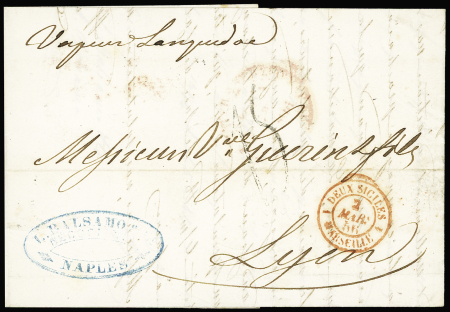 Vapeur Languedoc
Messieurs Vve Guerin & fils
Lyon
BALSAMO
NAPLES
1 DEUX SICILES 1
MAR
56
MARSEILLE